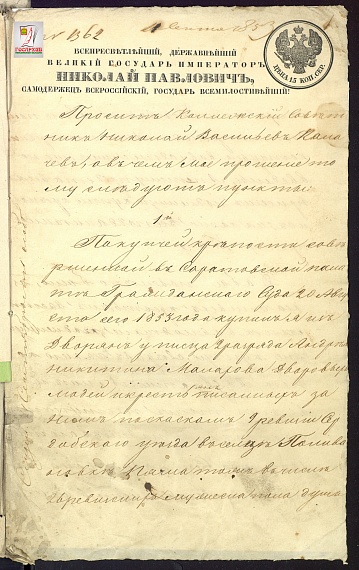 N 1362
1 Сент 1853
ВСЕПРЕСВѢТЛѢЙШІЙ, ДЕРЖАВНѢЙШІЙ
ВЕЛИКІЙ ГОСУДАРЬ ИМПЕРАТОРЪ
НИКОЛАЙ ПАВЛОВИЧЪ,
САМОДЕРЖЕЦЪ ВСЕРОССІЙСКІЙ, ГОСУДАРЬ ВСЕМИЛОСТИВѢЙШІЙ!
ЦѢНА 15 КОП. СЕР.
Проситъ Коллежскій Совѣт
никъ Николай Васильевъ Кала
чевъ, а о чемъ мое прошеніе то
му слѣдуютъ пункты:
1й
По купчей крѣпости сов
ршенной въ Саратовской пала
тѣ Гражданскаго Суда 20 Авгу
ста сего 1853 года купилъ я изъ
Дворянъ у писца 2 разряда Андрея
Никитина Макарова Дворовыхъ
людей и крестьянъ писанныхъ за
нимъ по сказкамъ 9 ревизіи Сер
добскаго уѣзда въ сельцѣ
въ числѣ
ревизіи мужеска пола душъ